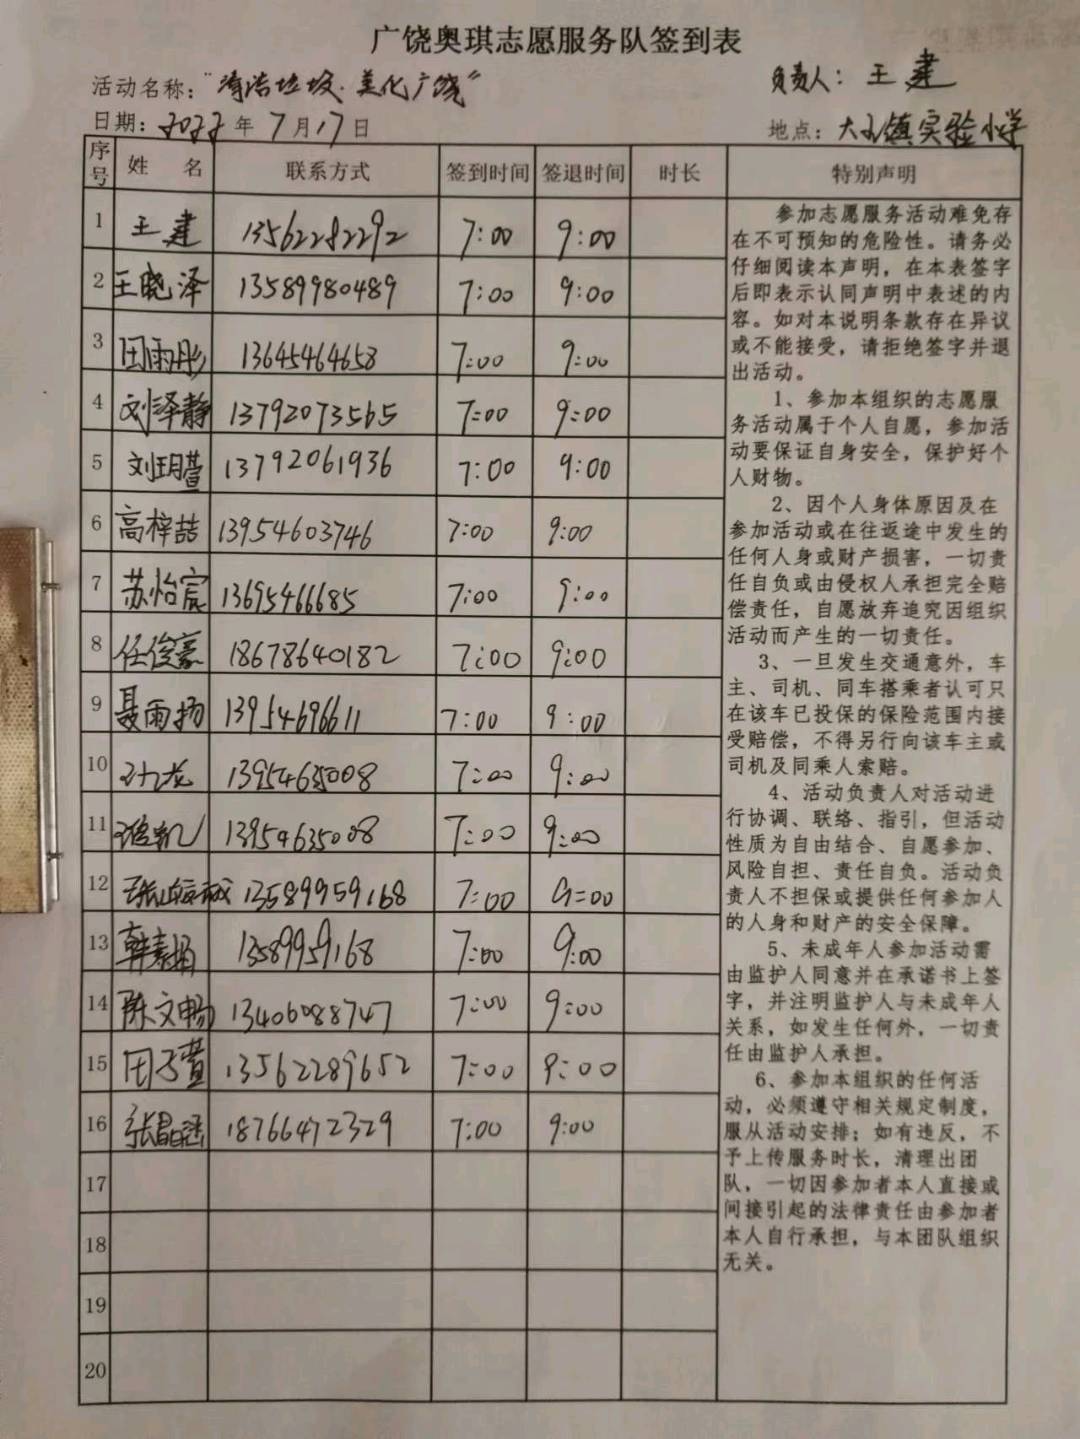 广饶奥琪志愿服务队签到表
活动名称：“清洁垃圾·美化广饶”
负责人：王建
日期：2022年7月17日
地点：大王镇实验小学
序号 姓名 联系方式 签到时间 签退时间 时长 特别声明
1 王建 13562282292 7:00 9:00
2 王晓泽 13589980489 7:00 9:00
3 田雨彤 13645464658 7:00 9:00
4 刘泽静 13792073565 7:00 9:00
5 刘玥萱 13792061936 7:00 9:00
6 高梓喆 13954603746 7:00 9:00
7 苏怡宸 13695466685 7:00 9:00
8 任俊豪 18678640182 7:00 9:00
9 聂雨扬 13954696611 7:00 9:00
10 13954635008 7:00 9:00
11 13954635008 7:00 9:00
12 13589959168 7:00 9:00
13 韩 13589959168 7:00 9:00
14 陈文畅 13406088747 7:00 9:00
15 田子萱 13562289652 7:00 9:00
16 张晶涵 18766472329 7:00 9:00
17
18
19
20
参加志愿服务活动难免存
在不可预知的危险性。请务必
仔细阅读本声明，在本表签字
后即表示认同声明中表述的内
容。如对本说明条款存在异议
或不能接受，请拒绝签字并退
出活动。
1、参加本组织的志愿服
务活动属于个人自愿，参加活
动要保证自身安全，保护好个
人财物。
2、因个人身体原因及在
参加活动或在往返途中发生的
任何人身或财产损害，一切责
任自负或由侵权人承担完全赔
偿责任，自愿放弃追究因组织
活动而产生的一切责任。
3、一旦发生交通意外，车
主、司机、同车搭乘者认可只
在该车已投保的保险范围内接
受赔偿，不得另行向该车主或
司机及同乘人索赔。
4、活动负责人对活动进
行协调、联络、指引，但活动
性质为自由结合、自愿参加、
风险自担、责任自负。活动负
责人不担保或提供任何参加人
的人身和财产的安全保障。
5、未成年人参加活动需
由监护人同意并在承诺书上签
字，并注明监护人与未成年人
关系，如发生任何外，一切责
任由监护人承担。
6、参加本组织的任何活
动，必须遵守相关规定制度，
服从活动安排；如有违反，不
予上传服务时长，清理出团
队，一切因参加者本人直接或
间接引起的法律责任由参加者
本人自行承担，与本团队组织
无关。